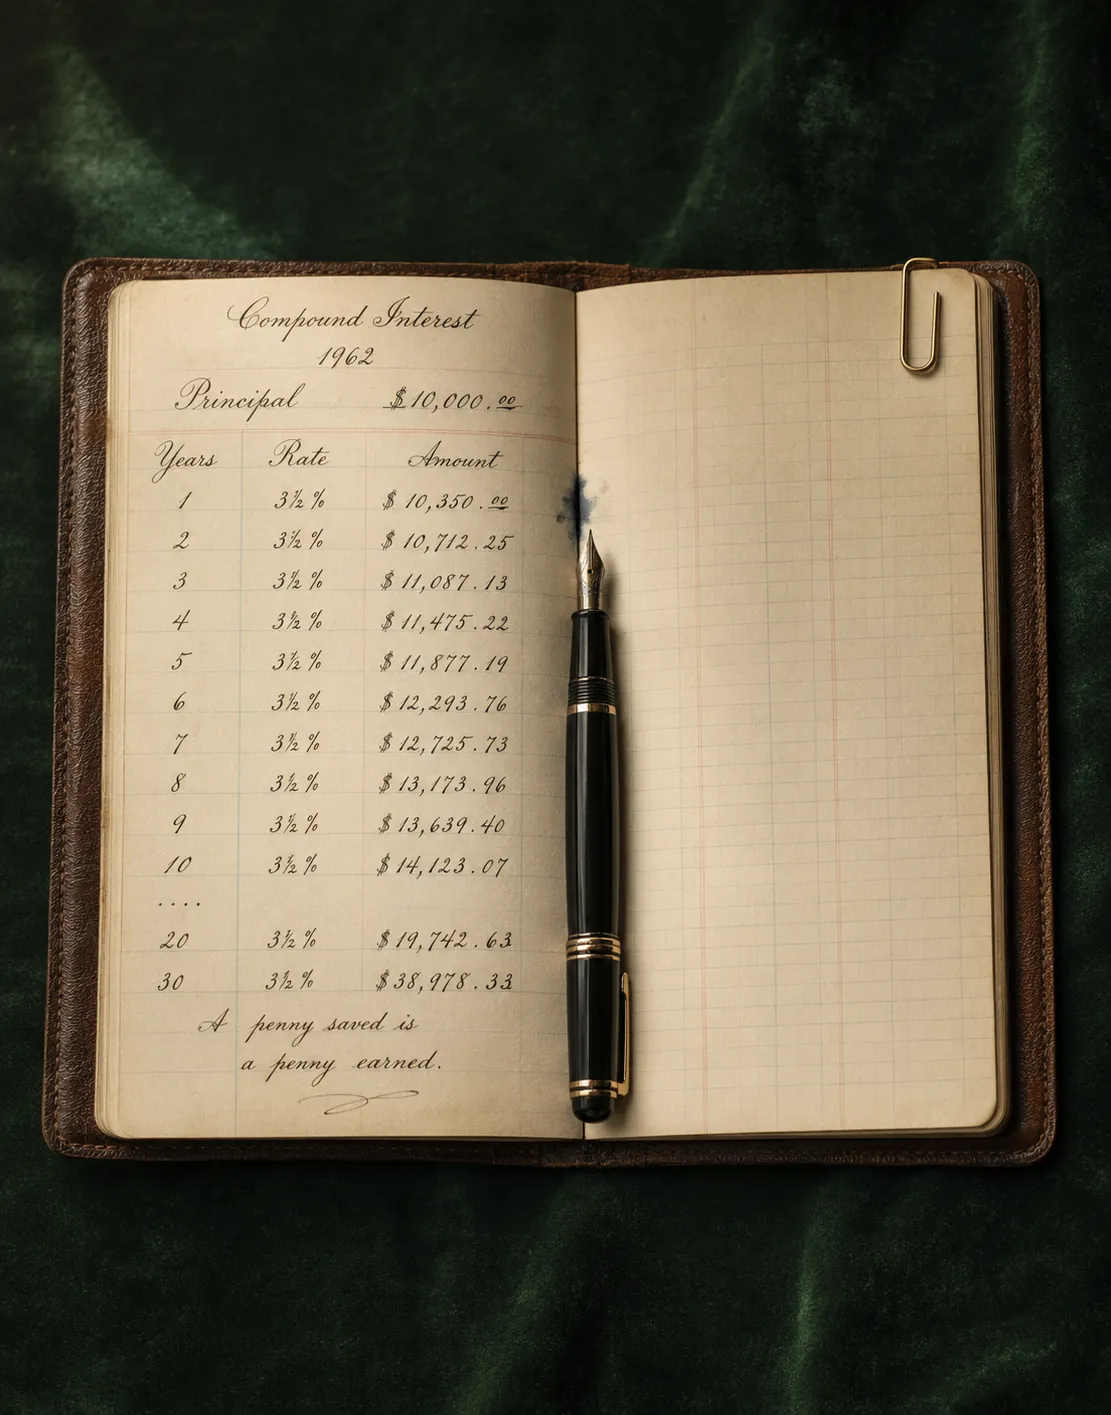 Compound Interest
1962
Principal $10,000.00
Years Rate Amount
1 3½% $10,350.00
2 3½% $10,712.25
3 3½% $11,087.13
4 3½% $11,475.22
5 3½% $11,877.19
6 3½% $12,293.76
7 3½% $12,725.73
8 3½% $13,173.96
9 3½% $13,639.40
10 3½% $14,123.07
....
20 3½% $19,742.63
30 3½% $38,978.33
A penny saved is
a penny earned.